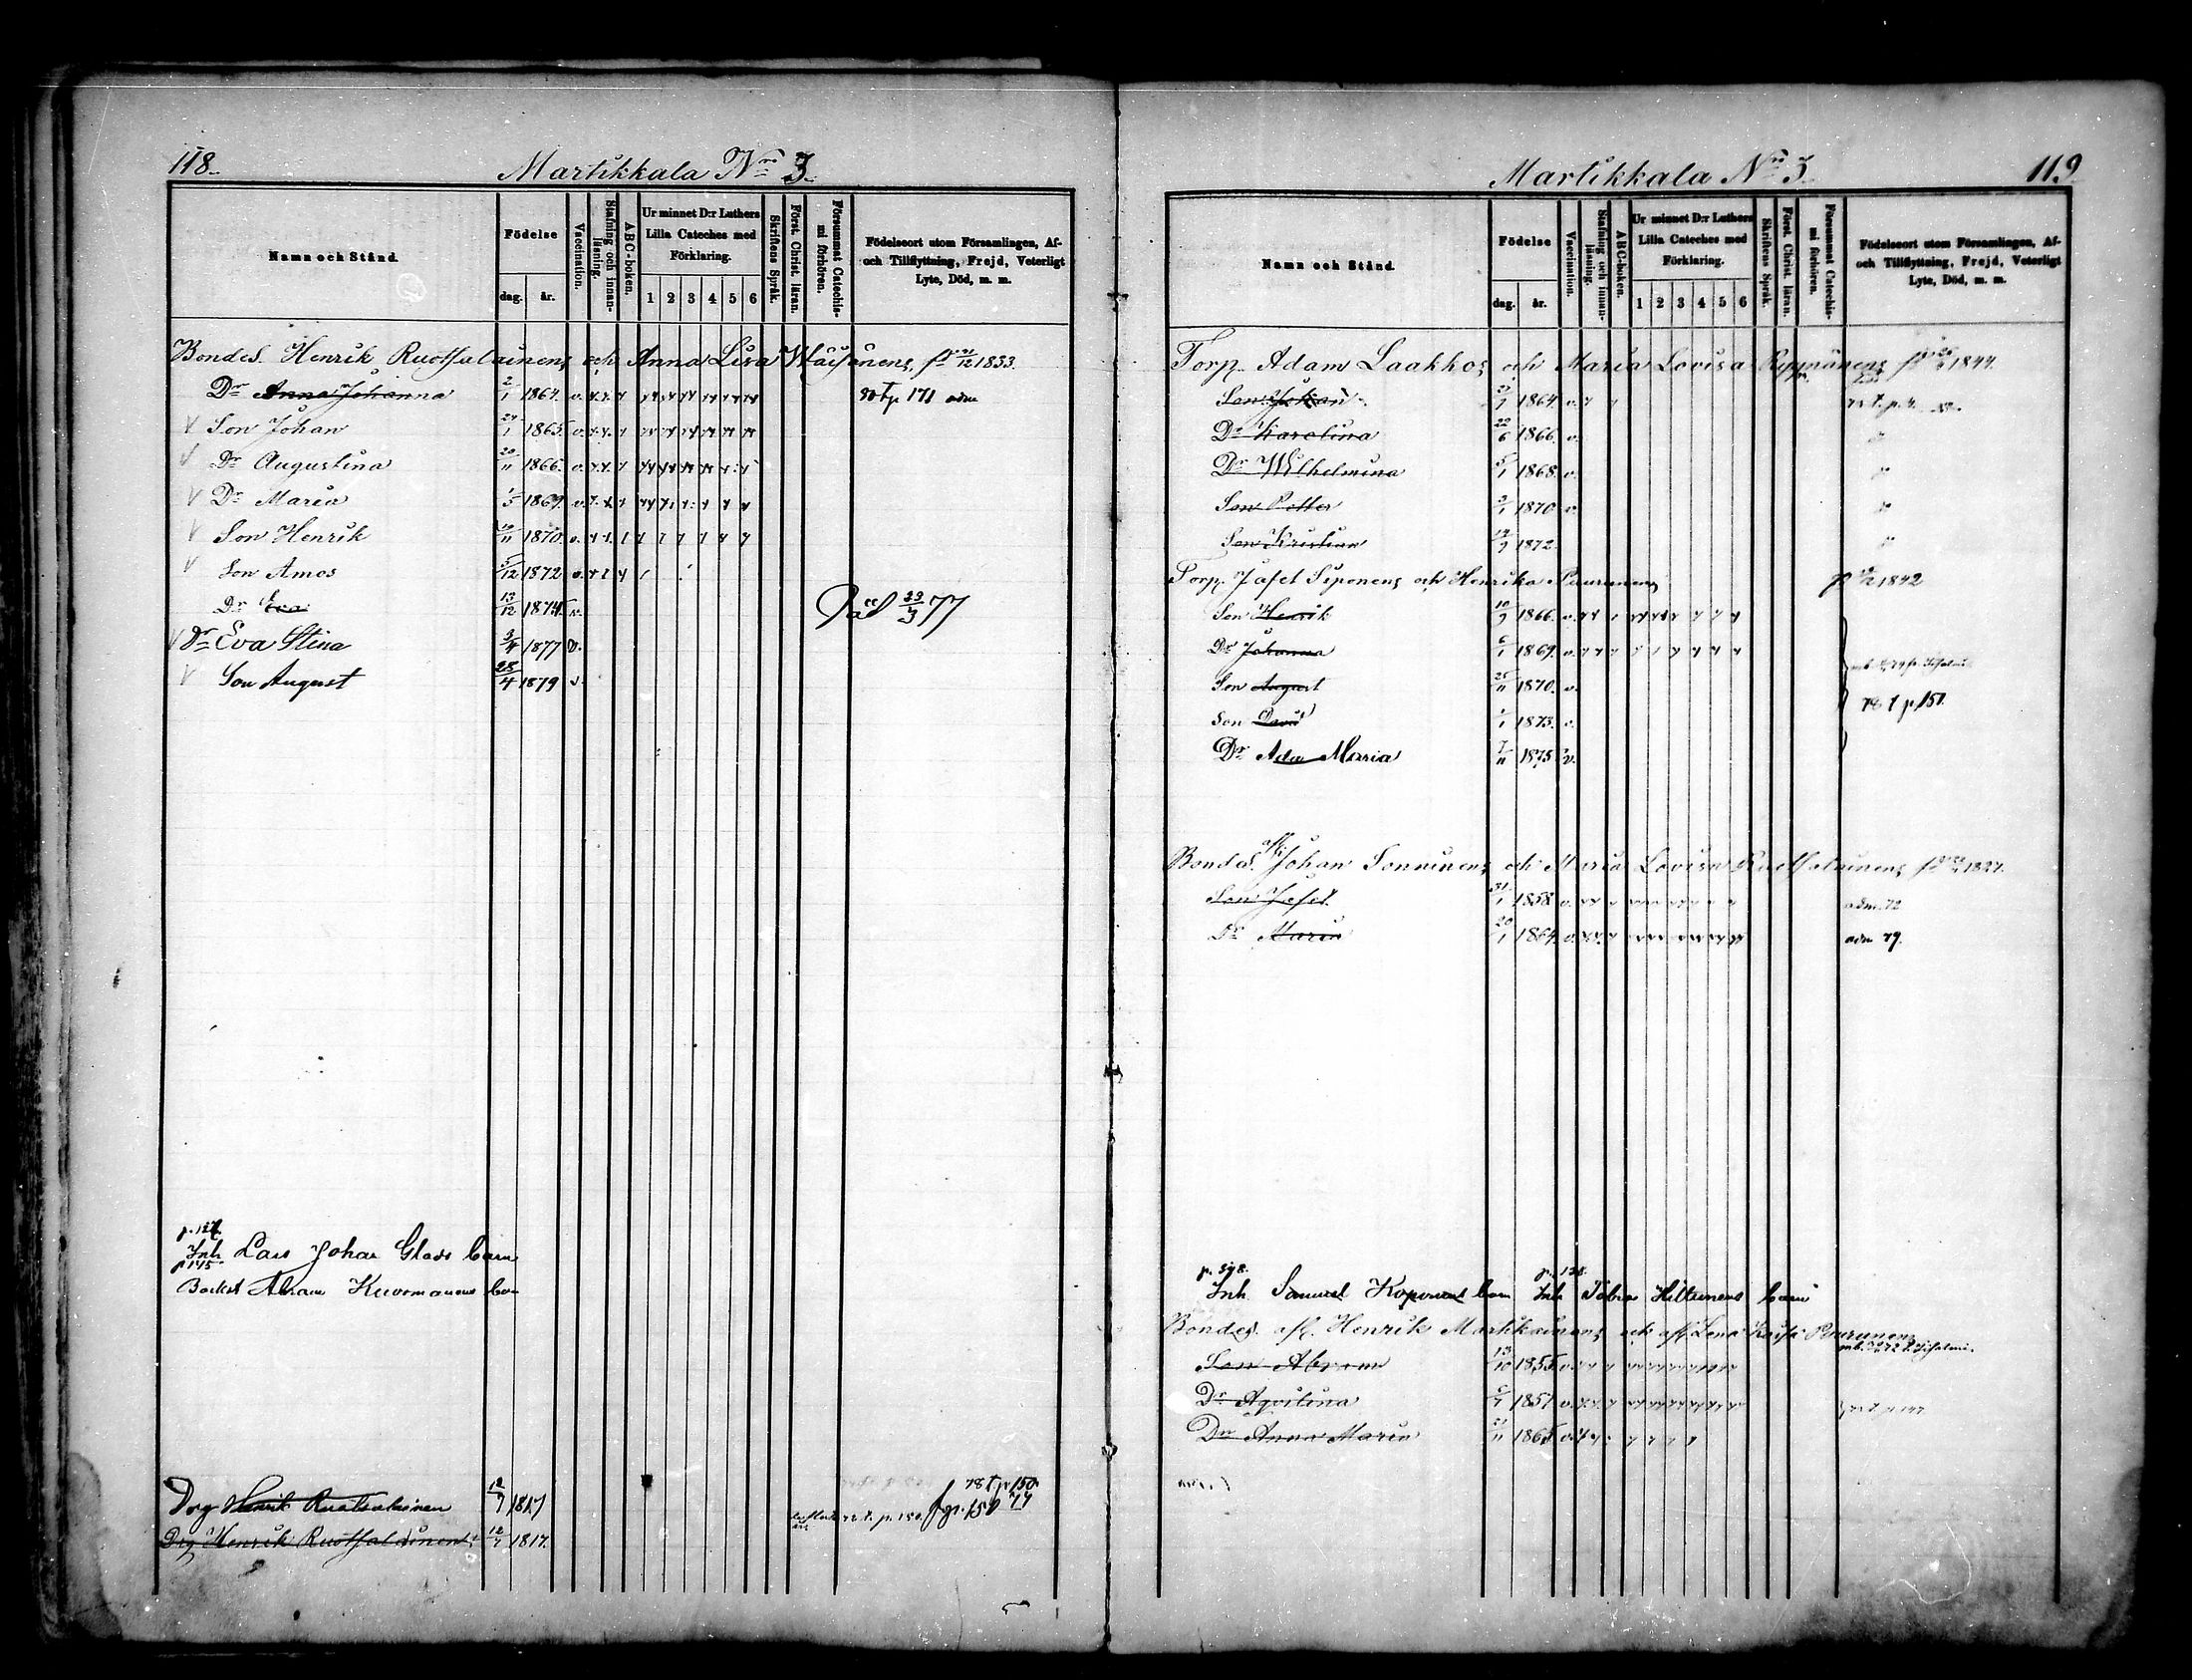 118.
Martikkala Nro 3.
Namn och Stånd.
Födelse
dag. år.
Vaccination.
Stafning och innanläsning.
ABC-boken.
Ur minnet D:r Luthers Lilla Cateches med Förklaring.
1 2 3 4 5 6
Skriftens Språk.
Först. Christ. läran.
Försummat Catechismi förhören.
Födelseort utom Församlingen, Af- och Tillflyttning, Frejd, Veterligt Lyte, Död, m. m.
BondeS. Henrik Ruotsalainens och Anna Lisa Wäisänens, f. 12 1833.
Dr Anna Johanna 2/1 1864. v. 80 t p 171 adm
Son Johan 24/1 1865. v.
Dr Augustina 20/11 1866. v.
Dr Maria 1/5 1869. v.
Son Henrik 1870. v.
Son Amos 5/12 1872 v.
Dr Eva 13/12 1874. v. Död 23/3 77
Dr Eva Stina 3/4 1877 v.
Son August 28/4 1879 v.
p. 127
Inh Lars Johan Glads barn
p 145
Backst Abram Kuosmanens barn
78 t p 150
Drg Henrik Ruotsalainen 12/7 1817
Drg Henrik Ruotsalainen 12/7 1817.
119
Martikkala No 3
Namn och Stånd.
Födelse
dag. år.
Vaccination.
Stafning och innanläsning.
ABC-boken.
Ur minnet D:r Luthers Lilla Cateches med Förklaring.
1 2 3 4 5 6
Skriftens Språk.
Först. Christ. läran.
Försummat Catechismi förhören.
Födelseort utom Församlingen, Af- och Tillflyttning, Frejd, Veterligt Lyte, Död, m. m.
Torp. Adam Laakkos och Maria Lovisa Ryynänens 1844.
Son Johan 1864. v.
Dr Karolina 22/6 1866. v.
Dr Wilhelmina 1868. v.
Son Petter 1870 v.
Son Kristian 1872.
Torp. Jafet Siponens och Henrika Puurunens 1842
Son Henrik 10/9 1866. v.
Dr Johanna 6/1 1869. v.
Son August 25/11 1870. v.
78 t p 151.
Son David 1/1 1873. v.
Dr Ada Maria 7/11 1875 v.
BondeS. Johan Sonninens och Maria Lovisa Ruotsalainens 1827.
Son Jafet 31/1 1858 v. adm. 72
Dr Maria 20/1 1864. v. adm 79.
p. 598. p. 128.
Inh. Samuel Koponens barn Inh Tobias Hiltunens barn
BondeS. afl. Henrik Martikainens och afl. Lena Kaisa Puurunens
Son Abram 13/10 1855. v.
Dr Agvilina 1857 v.
Dr Anna Maria 21/11 1865 v.